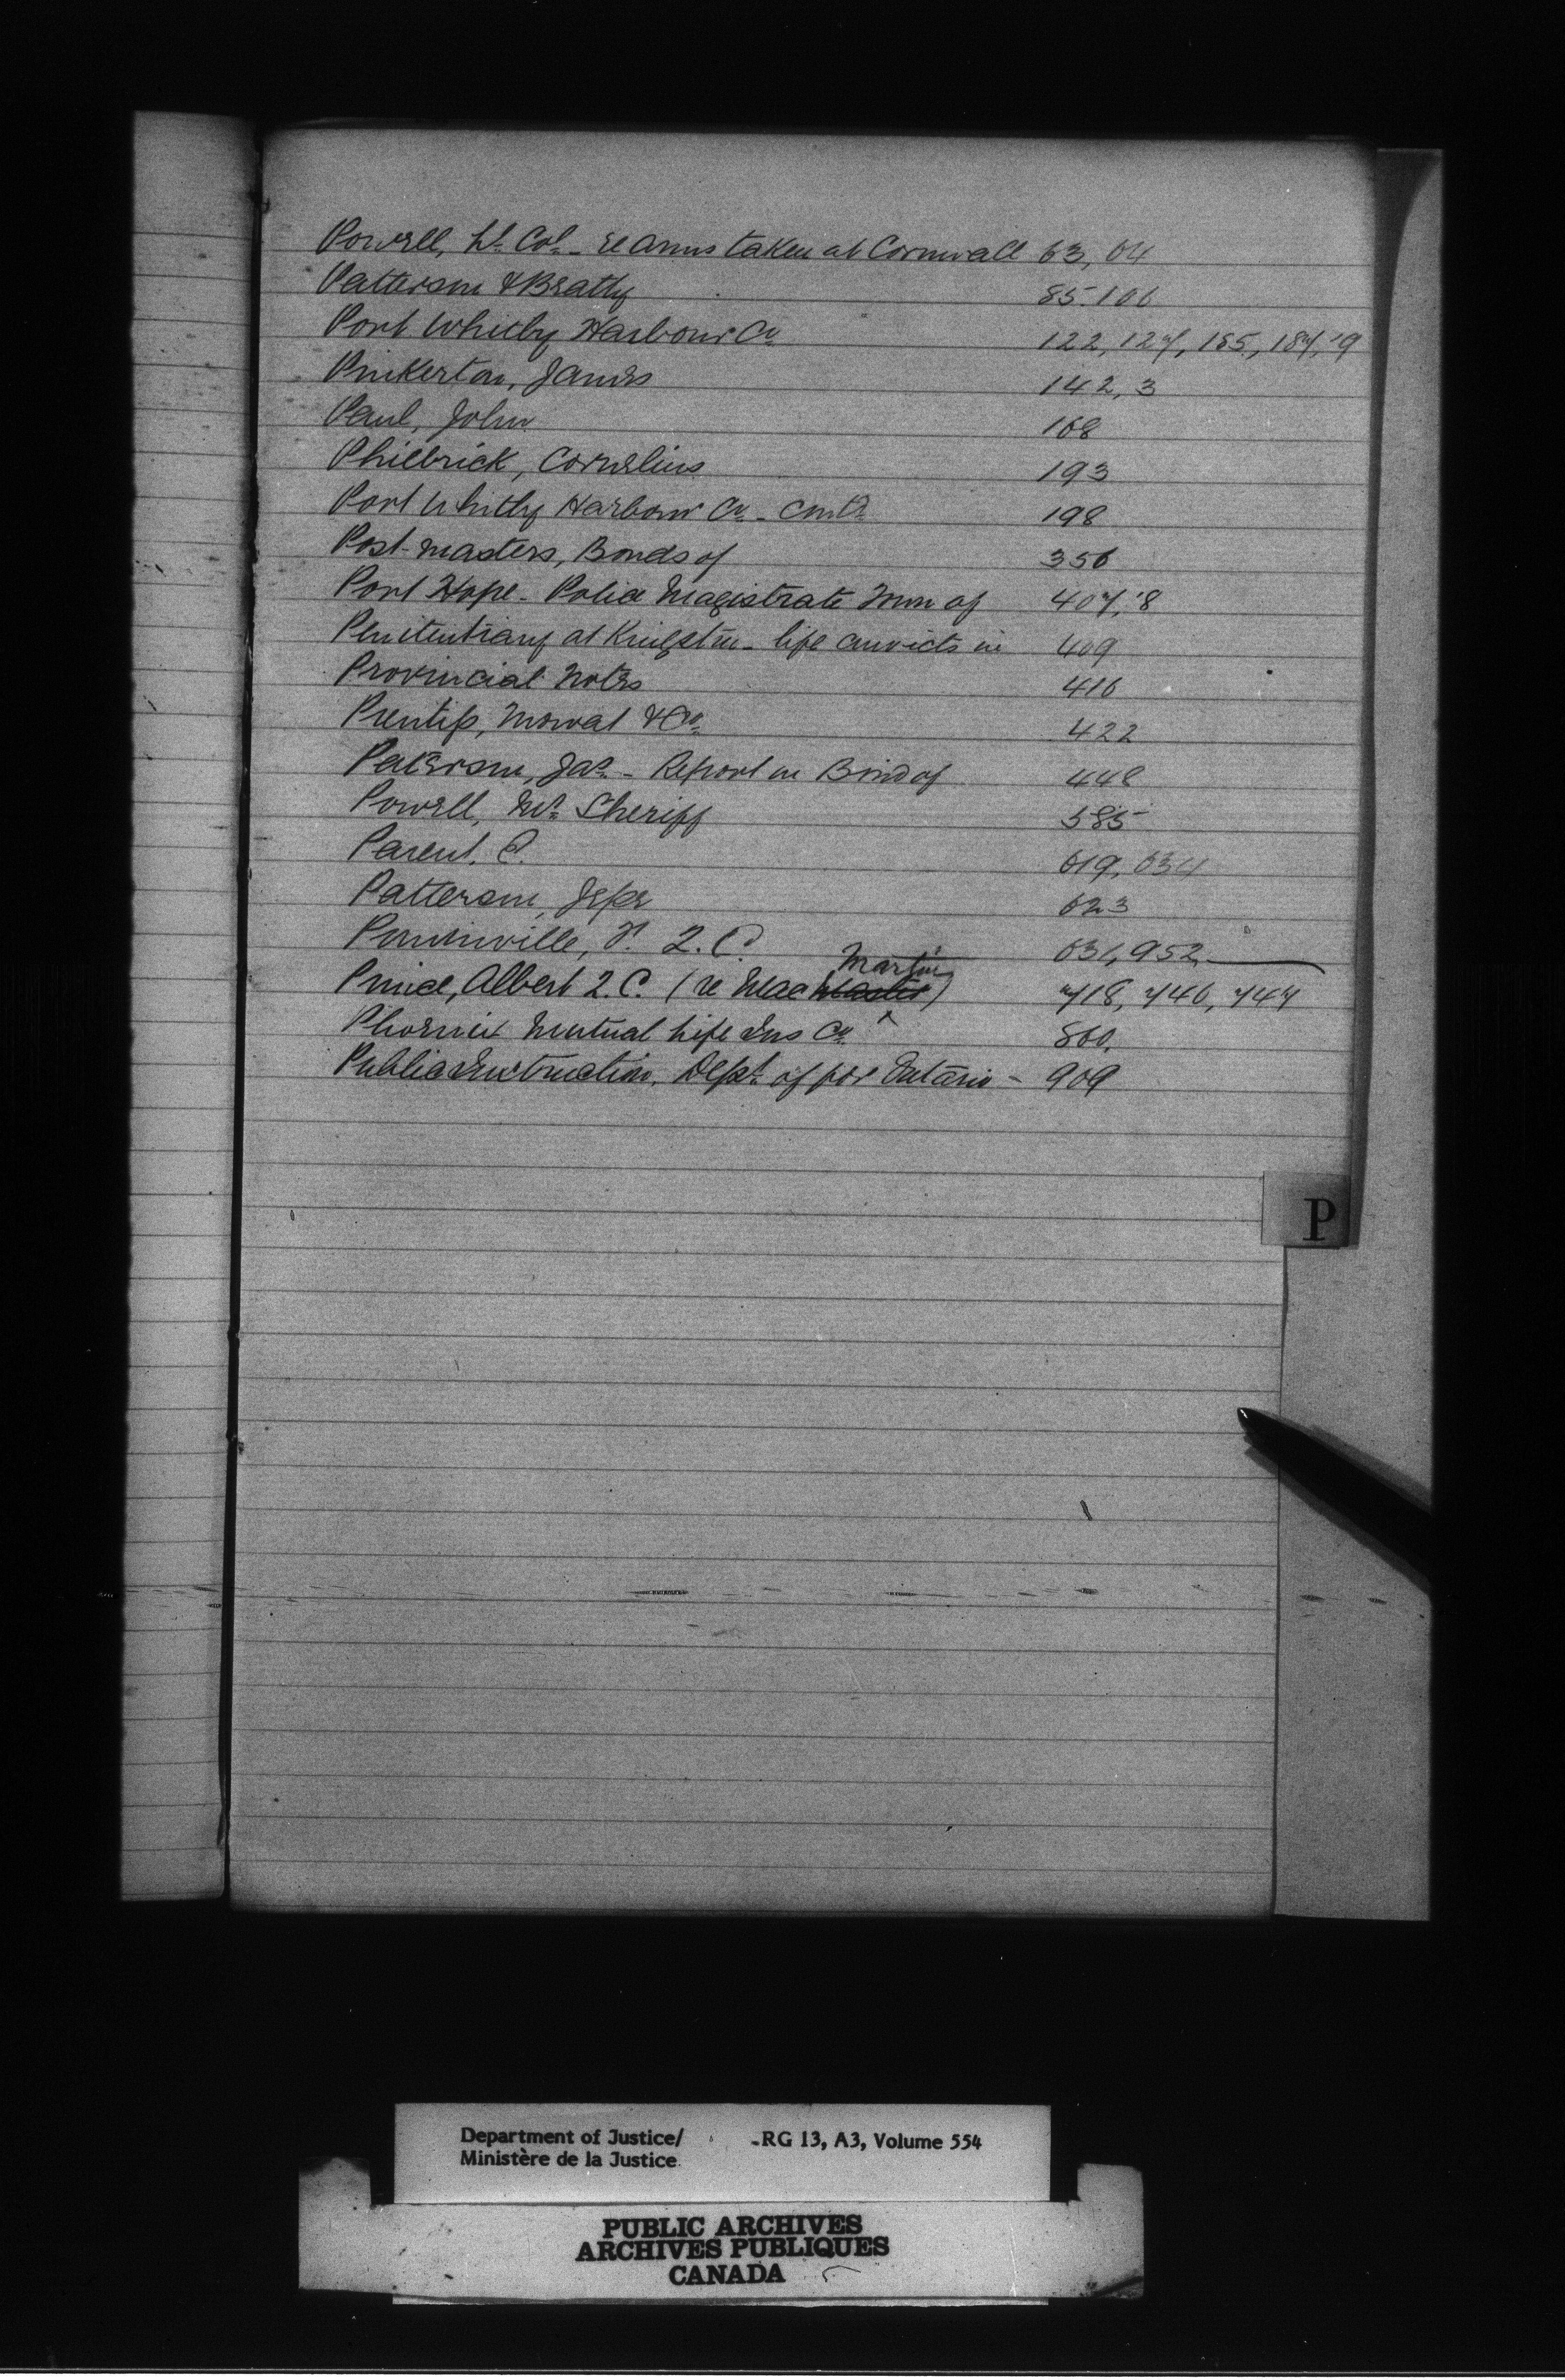 Powell, Lt. Col. - re arms taken at Cornwall 63, 64
Patterson & Beatty 85. 106
Port Whitby Harbour Co. 122, 127, 185, 187, '9
Pinkerton, James 142, 3
Paul, John 168
Philbrick, Cornelius 193
Port Whitby Harbour Co. - contd. 198
Post-masters, Bonds of 356
Port Hope - Police Magistrate of 407, '8
Penitentiary at Kingston - life convicts in 409
Provincial Notes 416
Prentiss, Mowat & Co. 422
Paterson, Jas. - Report on Bond of 448
Powell, Mr. Sheriff 585
Parent, E. 619, 634
Patterson, Jesse 623
2.C. 631, 952
Martin
Prince, Albert 2.C. (re MacMaster) 718, 746, 747
Phoenix Mutual Life Ins Co. 860.
Public Instruction, Dept. of for Ontario - 909
P
Department of Justice/ - RG 13, A3, Volume 554
Ministère de la Justice
PUBLIC ARCHIVES
ARCHIVES PUBLIQUES
CANADA